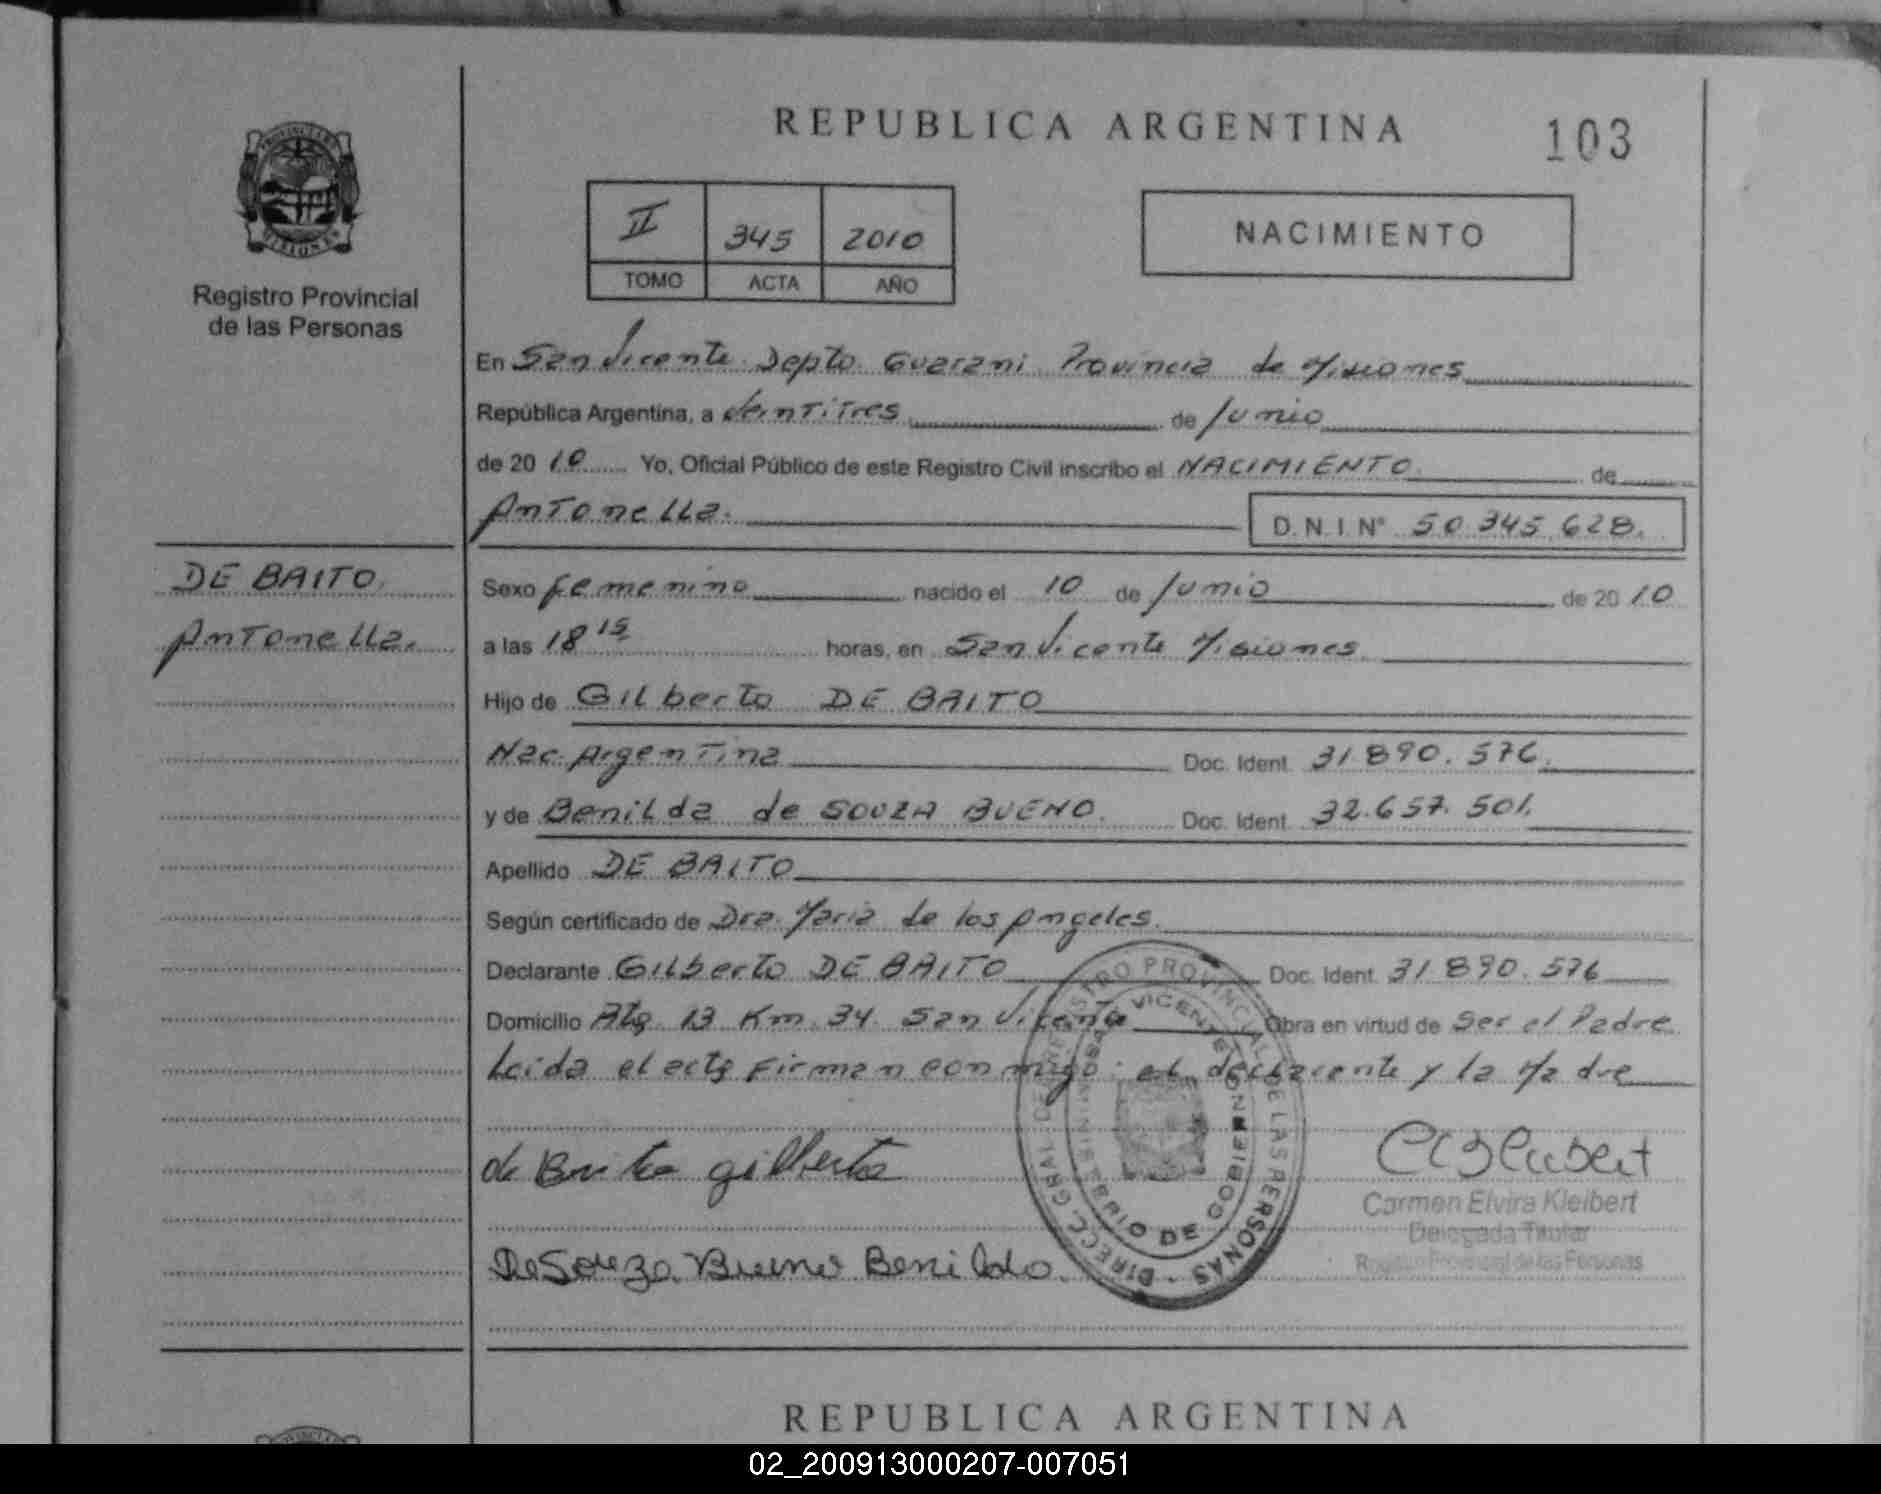 REPUBLICA ARGENTINA
103
PROVINCIA DE MISIONES
Registro Provincial
de las Personas
II 345 2010
TOMO ACTA AÑO
NACIMIENTO
En San Vicente Depto Guarani Provincia de Misiones
República Argentina, a Veintitres de Junio
de 20 10 Yo, Oficial Público de este Registro Civil inscribo el NACIMIENTO de
Antonella. D.N.I. Nº 50.345.628.
DE BAITO
Antonella.
Sexo Femenino nacido el 10 de Junio de 20 10
a las 18 15 horas, en San Vicente Misiones
Hijo de Gilberto DE BAITO
Nac. Argentina Doc. Ident. 31.890.576.
y de Benilda de SOUZA BUENO. Doc. Ident. 32.657.501.
Apellido DE BAITO
Según certificado de Dra. Maria de los Angeles.
Declarante Gilberto DE BAITO Doc. Ident. 31.890.576
Domicilio Rta 13 Km 34 San Vicente Obra en virtud de Ser el Padre
Leida el acta Firman conmigo: el declarante y la Madre
de Brito gilberto
De Souza Bueno Benilda.
DIRECC. GRAL. DE REGISTRO PROVINCIAL DE LAS PERSONAS
MINISTERIO DE GOBIERNO
Carmen Elvira Kleibert
Delegada Titular
Registro Provincial de las Personas
REPUBLICA ARGENTINA
02_200913000207-007051